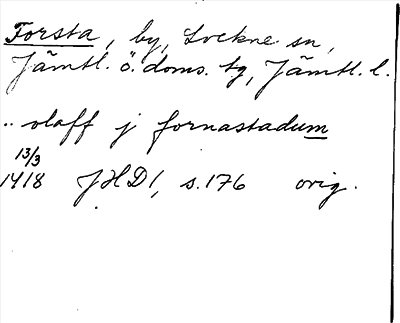 Forsta, by, Lockne sn,
Jämtl. ö. doms. tg, Jämtl. l.
.. olaff j fornastadum
13/3
1418 JHD1, s. 176 orig.